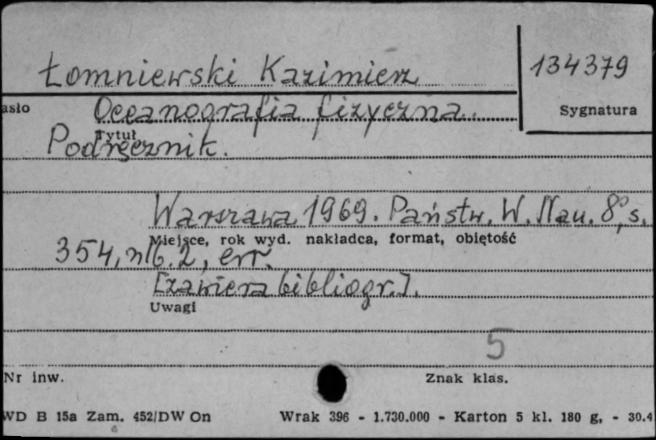 Łomniewski Kazimierz
134379
asło
Oceanografia fizyczna.
Sygnatura
Tytuł
Podręcznik.
Warszawa 1969. Państw. W. Nau. 8°, s.
Miejsce, rok wyd. nakładca, format, objętość
354, nlb. 2, err.
[zawiera bibliogr.].
Uwagi
5
Nr inw.
Znak klas.
WD B 15a Zam. 452/DW On Wrak 396 - 1.730.000 - Karton 5 kl. 180 g. - 30.4